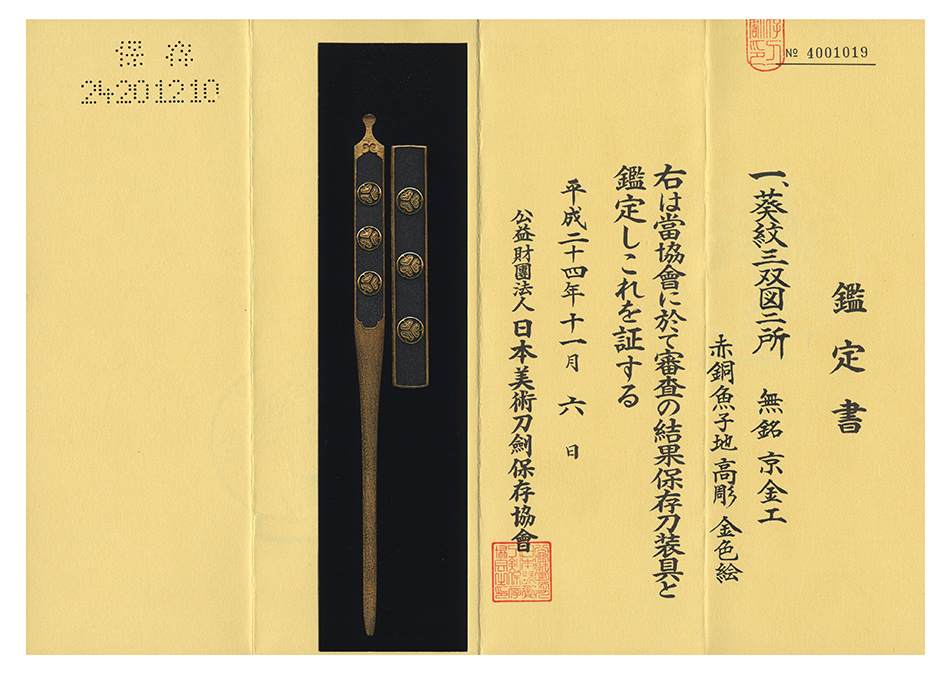 保存
24201210
№ 4001019
鑑定書
一、葵紋三双図二所 無銘 京金工
赤銅魚子地 高彫 金色絵
右は當協會に於て審査の結果保存刀装具と
鑑定しこれを証する
平成二十四年十一月 六 日
公益財團法人 日本美術刀劍保存協會